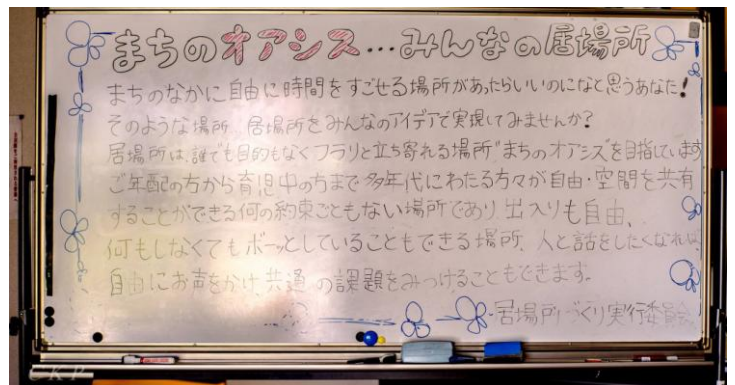 まちのオアシス…みんなの居場所
まちのなかに自由に時間をすごせる場所があったらいいのになと思うあなた!
そのような場所 居場所をみんなのアイデアで実現してみませんか?
居場所は、誰でも目的もなくフラリと立ち寄れる場所"まちのオアシス"を目指しています
ご年配の方から育児中の方まで多年代にわたる方々が自由・空間を共有
することができる何の約束ごともない場所であり、出入りも自由、
何もしなくてもボーッとしていることもできる場所、人と話をしたくなれば、
自由にお声をかけ、共通の課題をみつけることもできます。
居場所づくり実行委員会
CKP